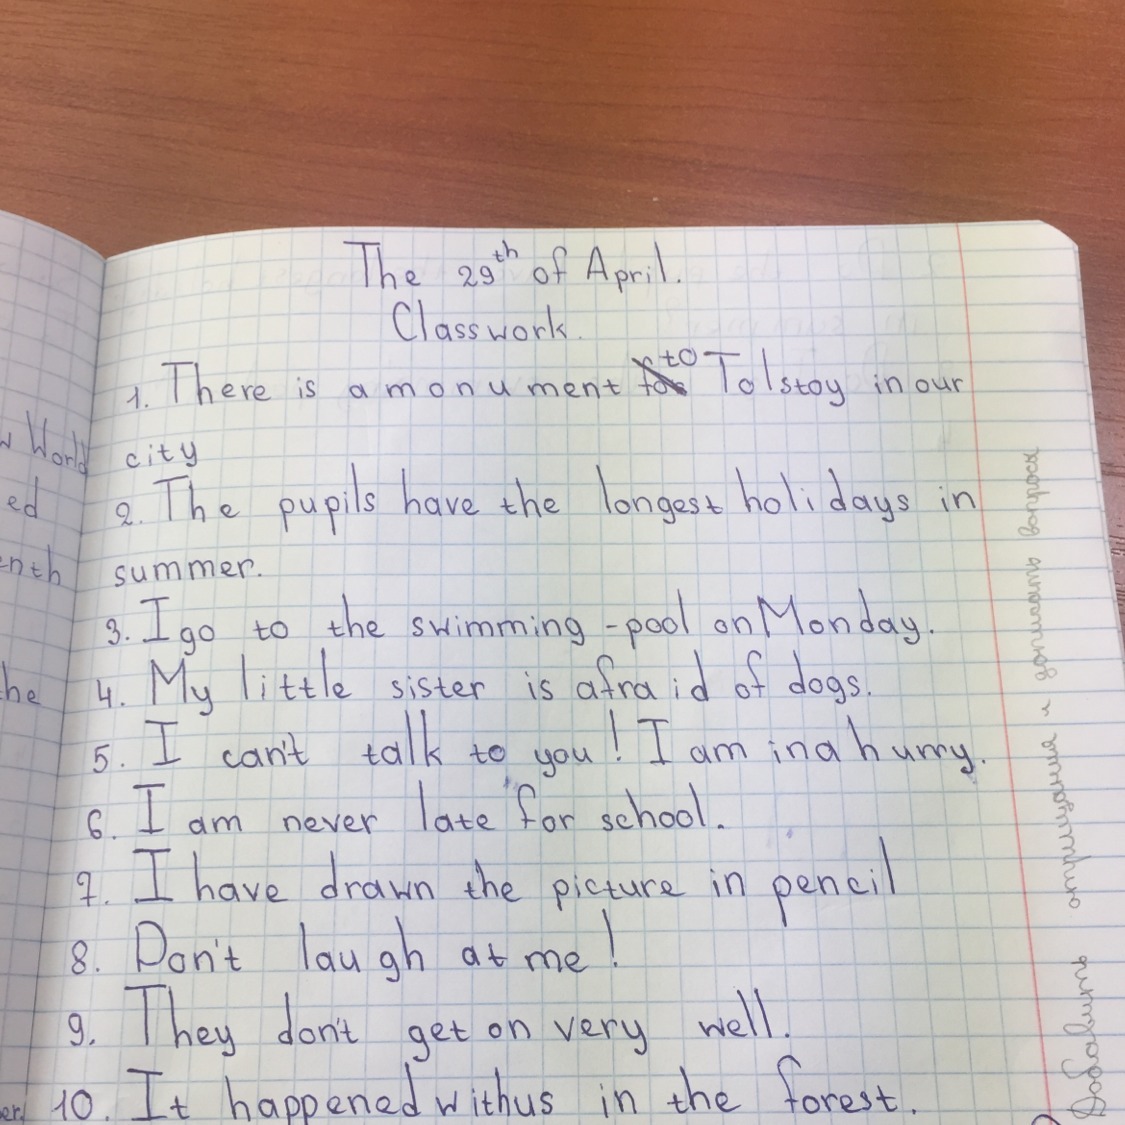 The 29th of April.
Classwork.
1. There is a monument to Tolstoy in our
city
2. The pupils have the longest holidays in
summer.
3. I go to the swimming-pool on Monday.
4. My little sister is afraid of dogs.
5. I can't talk to you! I am in a hurry.
6. I am never late for school.
7. I have drawn the picture in pencil
8. Don't laugh at me!
9. They don't get on very well.
10. It happened with us in the forest.
World
ed
enth
he
er
Добавить отрицания и дописать вопросы